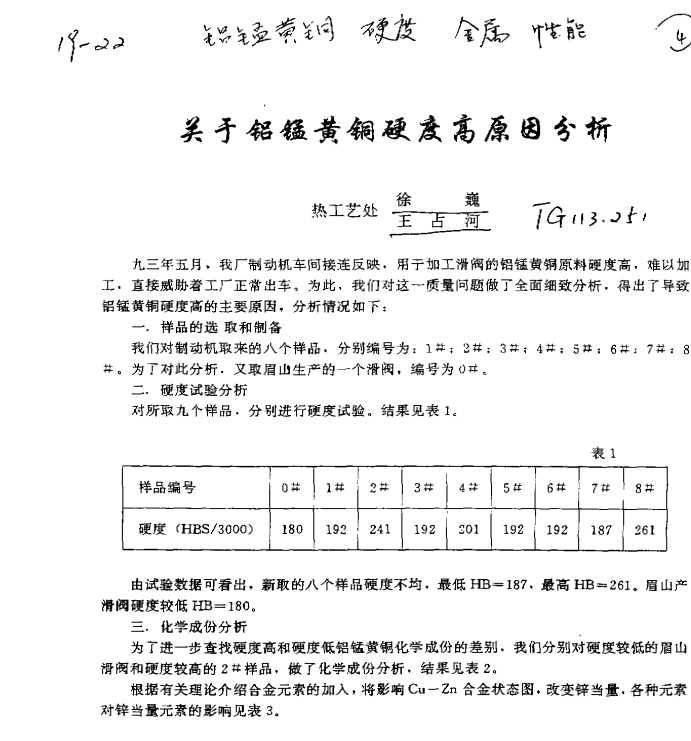 19-22 铝锰黄铜 硬度 金属 性能 4
关于铝锰黄铜硬度高原因分析
热工艺处 徐 巍
王占河
TG113.251
九三年五月，我厂制动机车间接连反映，用于加工滑阀的铝锰黄铜原料硬度高，难以加
工，直接威胁着工厂正常出车。为此，我们对这一质量问题做了全面细致分析，得出了导致
铝锰黄铜硬度高的主要原因，分析情况如下：
一．样品的选 取和制备
我们对制动机取来的八个样品，分别编号为：1#；2#；3#；4#；5#；6#；7#；8
#。为了对此分析，又取眉山生产的一个滑阀，编号为0#。
二．硬度试验分析
对所取九个样品，分别进行硬度试验。结果见表1。
表1
样品编号 0# 1# 2# 3# 4# 5# 6# 7# 8#
硬度（HBS/3000） 180 192 241 192 201 192 192 187 261
由试验数据可看出，新取的八个样品硬度不均，最低HB=187，最高HB=261。眉山产
滑阀硬度较低HB=180。
三．化学成份分析
为了进一步查找硬度高和硬度低铝锰黄铜化学成份的差别，我们分别对硬度较低的眉山
滑阀和硬度较高的2#样品，做了化学成份分析，结果见表2。
根据有关理论介绍合金元素的加入，将影响Cu-Zn合金状态图，改变锌当量，各种元素
对锌当量元素的影响见表3。